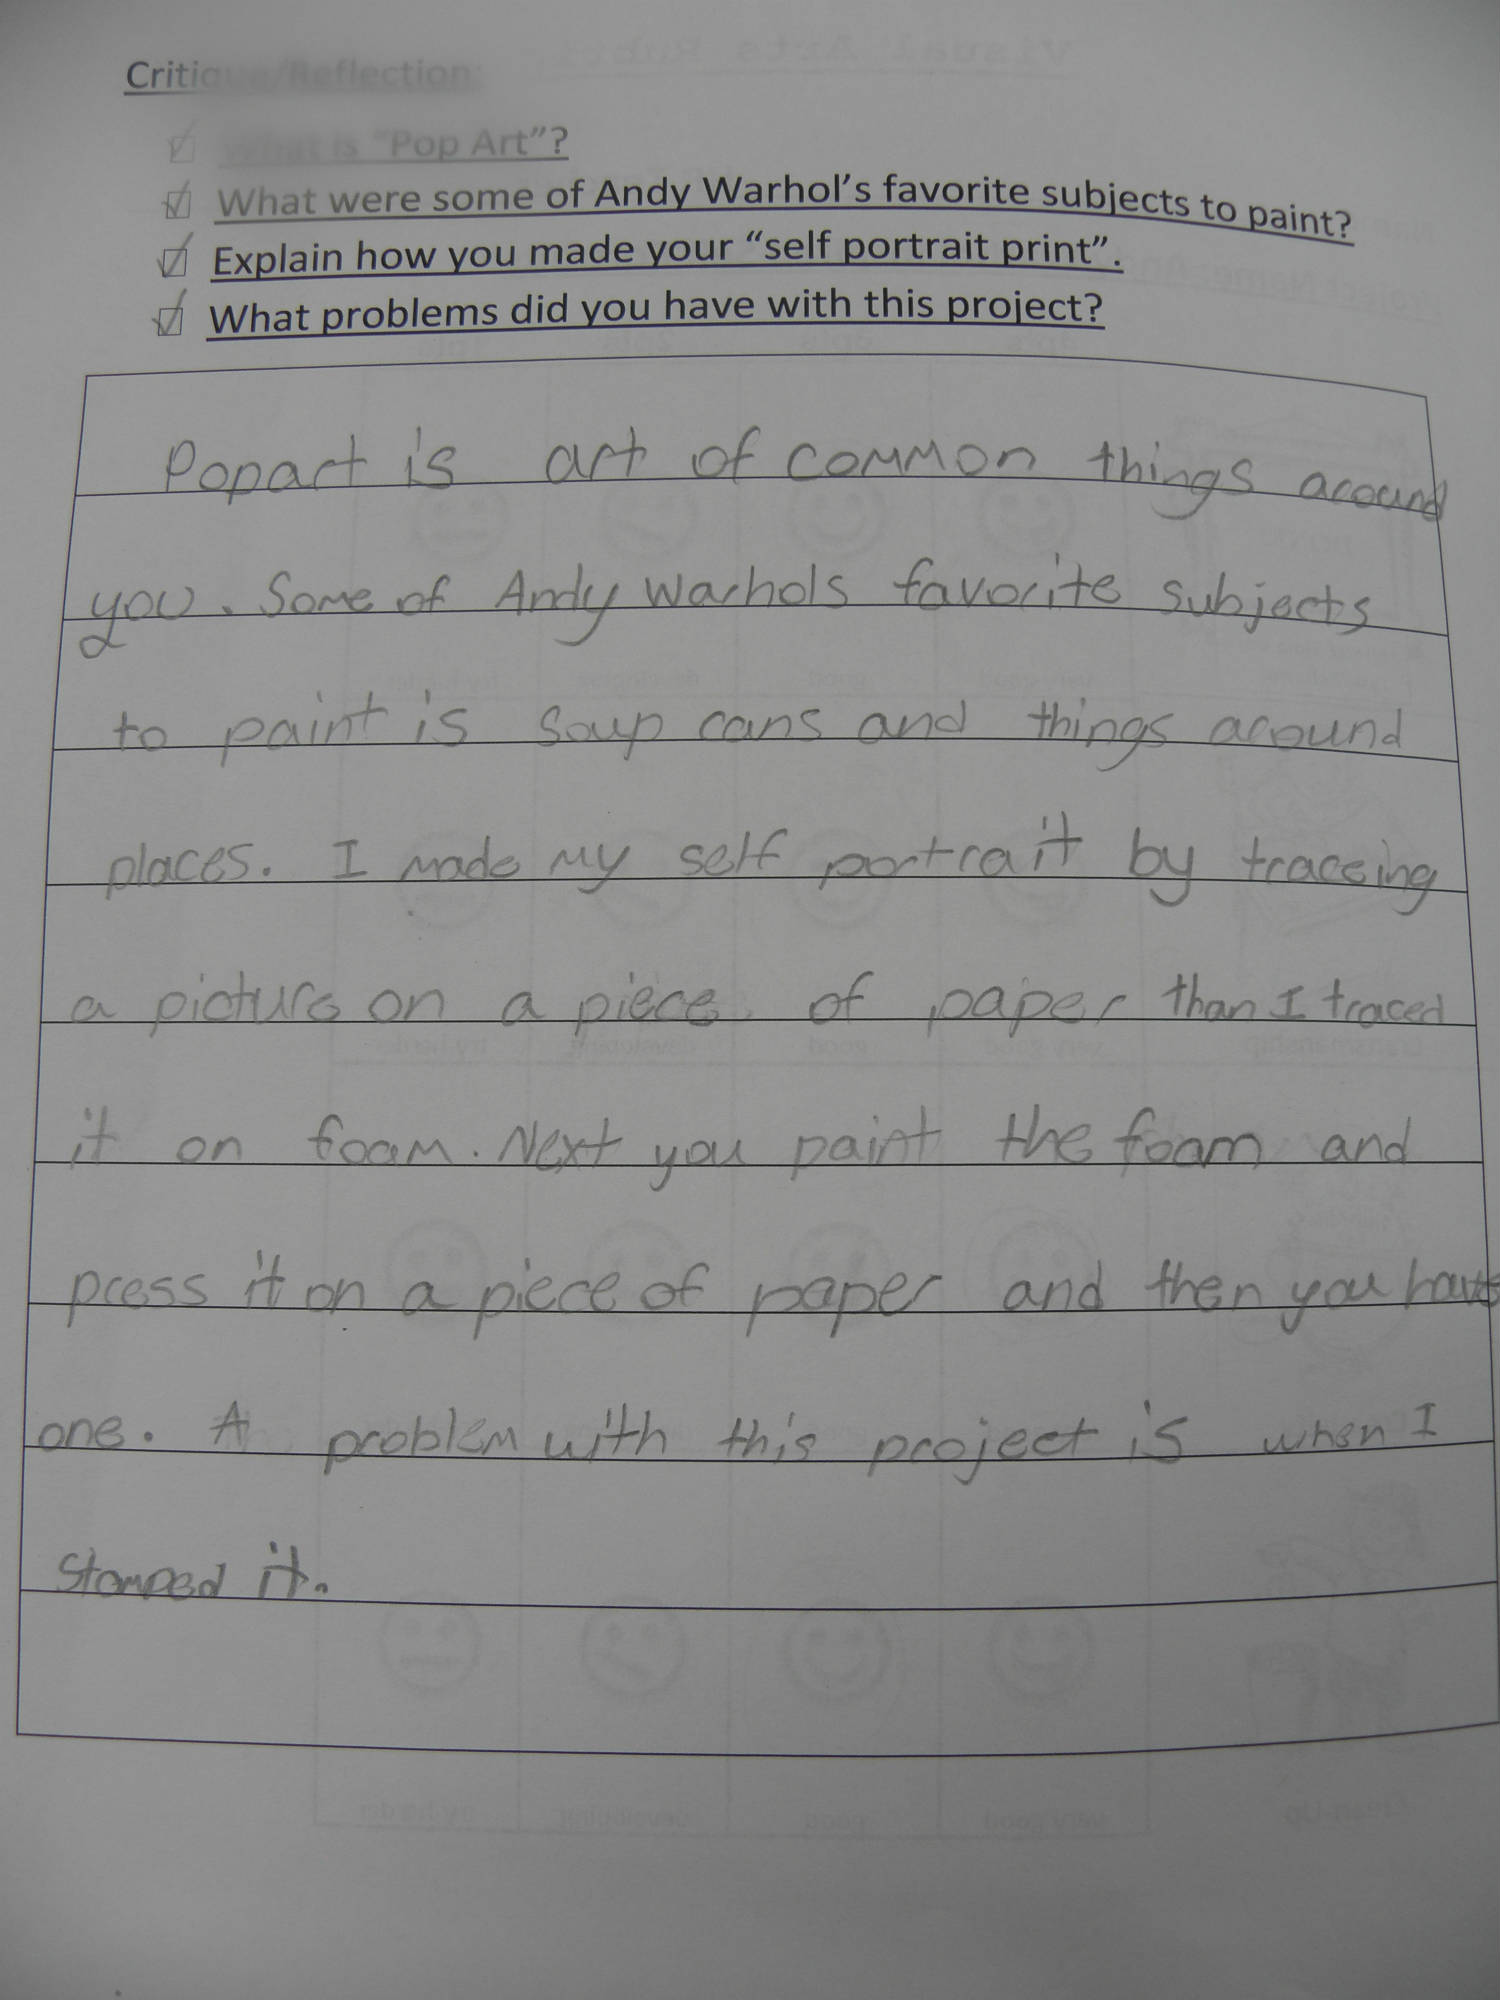 Critique/Reflection:
What is "Pop Art"?
What were some of Andy Warhol's favorite subjects to paint?
Explain how you made your "self portrait print".
What problems did you have with this project?
Popart is art of common things around
you. Some of Andy Warhols favorite subjects
to paint is Soup cans and things around
places. I made my self portrait by traceing
a picture on a piece of paper than I traced
it on foam. Next you paint the foam and
press it on a piece of paper and then you have
one. A problem with this project is when I
stamped it.